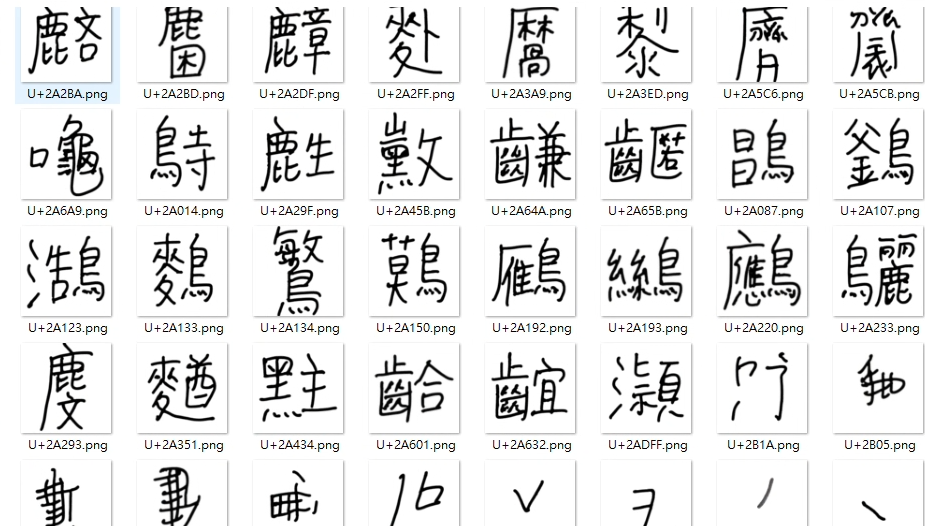 𪊺 𪊽 𪋟 𪋿 𪎩 𪏭 𪗆 𪗋
U+2A2BA.png U+2A2BD.png U+2A2DF.png U+2A2FF.png U+2A3A9.png U+2A3ED.png U+2A5C6.png U+2A5CB.png
𪚩 𪀔 𪊟 𪑛 𪙊 𪙛 𪂇 𪄇
U+2A6A9.png U+2A014.png U+2A29F.png U+2A45B.png U+2A64A.png U+2A65B.png U+2A087.png U+2A107.png
𪄣 𪄳 𪄴 𪅐 𪆒 𪆓 𪈠 𪈳
U+2A123.png U+2A133.png U+2A134.png U+2A150.png U+2A192.png U+2A193.png U+2A220.png U+2A233.png
𪊓 𪍑 𪐴 𪘁 𪘲 𪷿
U+2A293.png U+2A351.png U+2A434.png U+2A601.png U+2A632.png U+2ADFF.png U+2B1A.png U+2B05.png